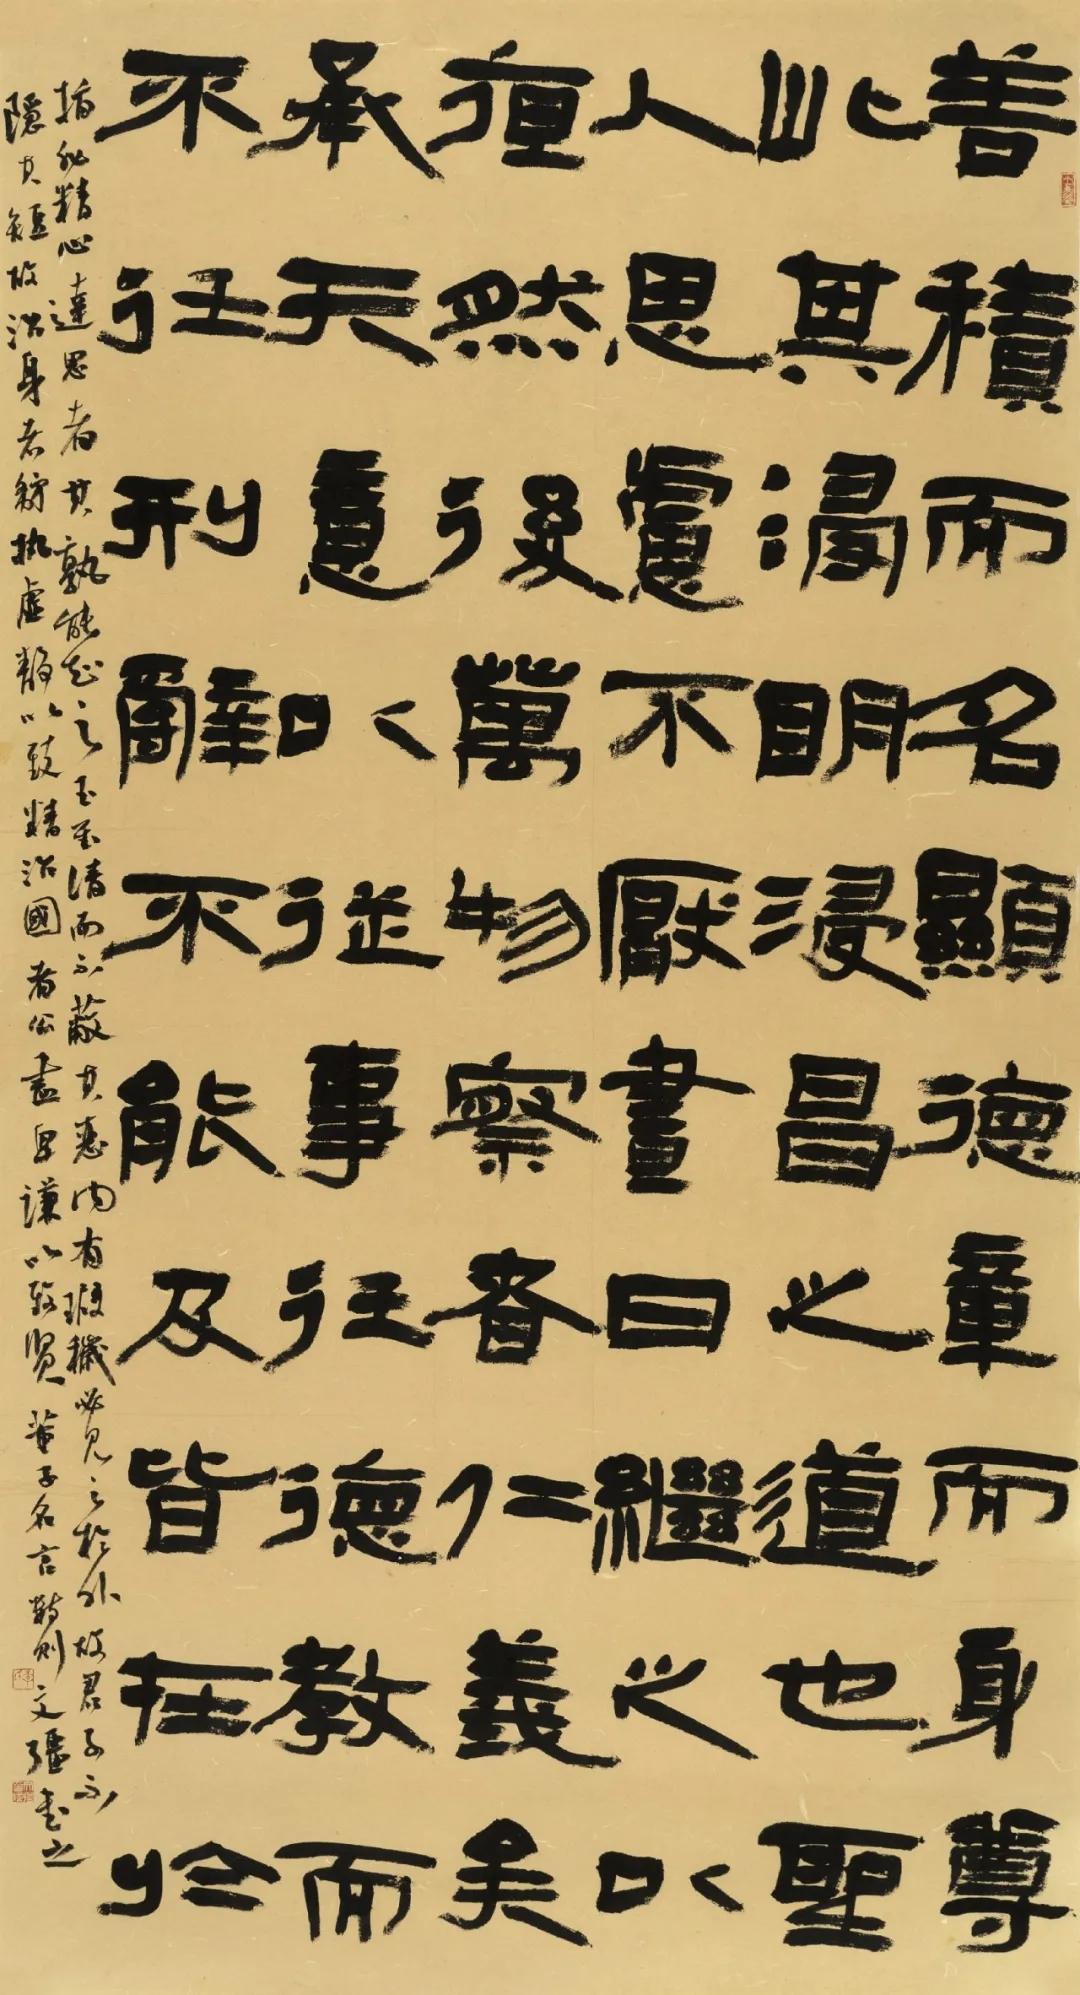 善積而名顯德章而身尊
此其浸明浸昌之道也聖
人思慮不厭晝日繼之以
亱然後萬物察者仁義矣
承天意以從事任德教而
不任刑辭不能及皆在於
指非精心達思者其孰能知之玉至清而不蔽其惡內有瑕穢必見之於外故君子不
隱其短故治身者務執虛靜以致精治國者公盡卑謙以致賢 董子名言數則 文強書之